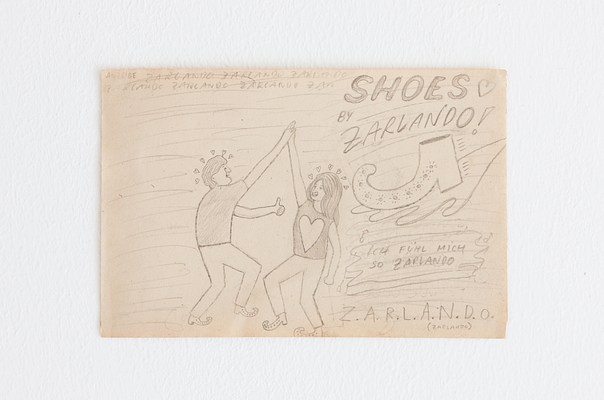 ZARLANDO ZARLANDO ZARLANDO
ZARLANDO ZARLANDO ZARLANDO ZAR
SHOES
BY
ZARLANDO!
ICH FÜHL MICH
SO ZARLANDO
Z.A.R.L.A.N.D.O.
(ZARLANDO)